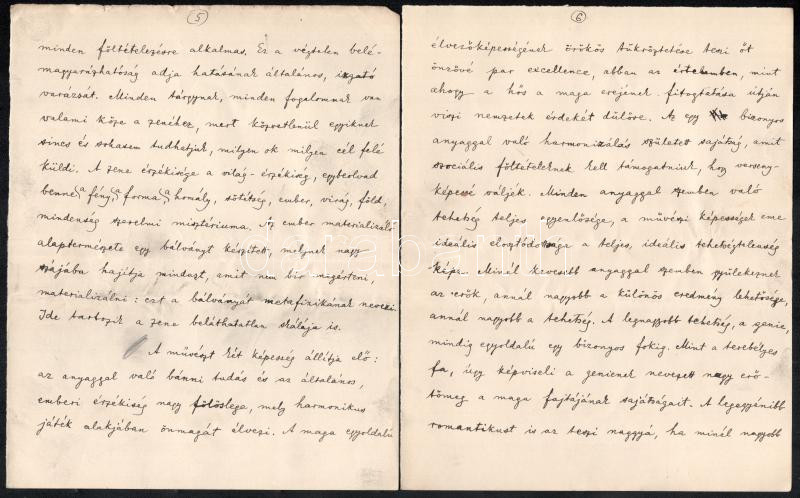 5
minden föltételezésre alkalmas. Ez a végtelen belé-
magyarázhatóság adja hatásának általános, izgató
varázsát. Minden tárgynak, minden fogalomnak van
valami köze a zenéhez, mert közvetlenül egyiknek
sincs és sohasem tudhatjuk, milyen ok milyen cél felé
küldi. A zene érzékisége a világ-érzékiség, egybeolvad
benne a fény, a forma, a homály, sötétség, ember, virág, föld,
mindenség szerelmi misztériuma. Az ember materializáló
alaptermészete egy bálványt készített, melynek nagy
szájába hajítja mindazt, amit nem bir megérteni,
materializálni: ezt a bálványát metafizikának nevezi.
Ide tartozik a zene beláthatatlan skálája is.
A művészt két képesség állítja elő:
az anyaggal való bánni tudás és az általános,
emberi érzékiség nagy fölöslege, mely harmonikus
játék alakjában önmagát élvezi. A maga egyoldalú
6
élvezőképességének örökös tükröztetése teszi őt
önzővé par excellence, abban az értelemben, mint
ahogy a hős a maga erejének fitogtatása útján
viszi nemzetek érdekét dülőre. Az egy bizonyos
anyaggal való harmonizálás született sajátság, amit
szociális föltételeknek kell támogatniuk, hogy verseny-
képessé váljék. Minden anyaggal szemben való
tehetség teljes egyenlősége, a művészi képességek eme
ideális eloszlódottsága a teljes, ideális tehetségtelenség
képe. Minél kevesebb anyaggal szemben gyülekeznek
az erők, annál nagyobb a különös eredmény lehetősége,
annál nagyobb a tehetség. A legnagyobb tehetség, a genie,
mindig egyoldalú egy bizonyos fokig. Mint a terebélyes
fa, úgy képviseli a genienek nevezett nagy erő-
tömeg a maga fajtájának sajátságait. A legegyénibb
romantikust is az teszi naggyá, ha minél nagyobb